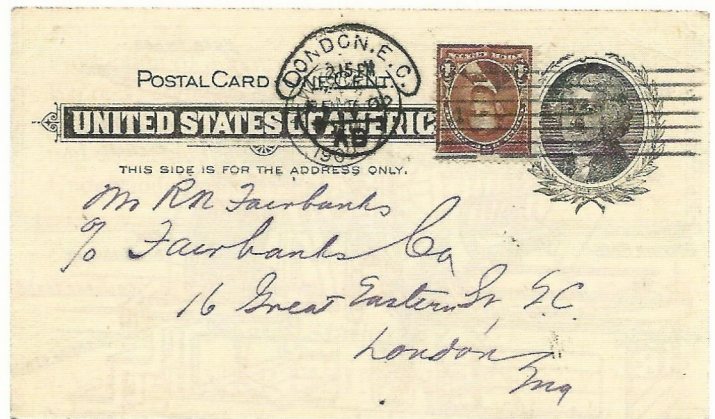 LONDON.E.C.
2.15 PM
POSTAL CARD ONE CENT.
UNITED STATES OF AMERICA
AB
1900
THIS SIDE IS FOR THE ADDRESS ONLY.
Mr R N Fairbanks
c/o Fairbanks Co
16 Great Eastern St E.C.
London
Eng